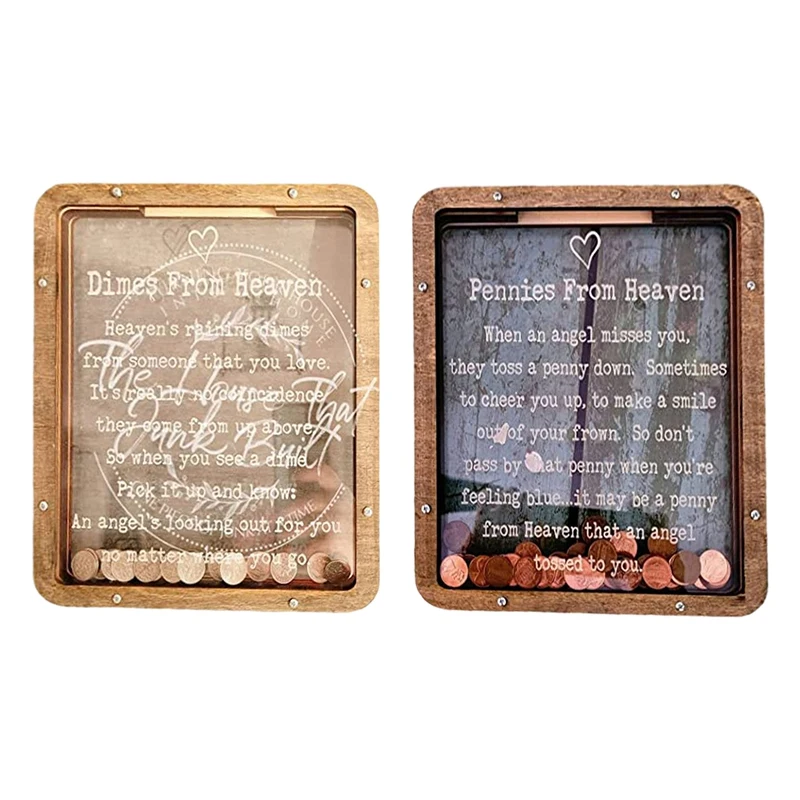 Dimes From Heaven
Heaven's raining dimes
from someone that you love.
It's really no coincidence
they come from up above.
So when you see a dime
Pick it up and know:
An angel's looking out for you
no matter where you go
The House That
Junk Built
HOUSE
TIME
Pennies From Heaven
When an angel misses you,
they toss a penny down. Sometimes
to cheer you up, to make a smile
out of your frown. So don't
pass by that penny when you're
feeling blue...it may be a penny
from Heaven that an angel
tossed to you.